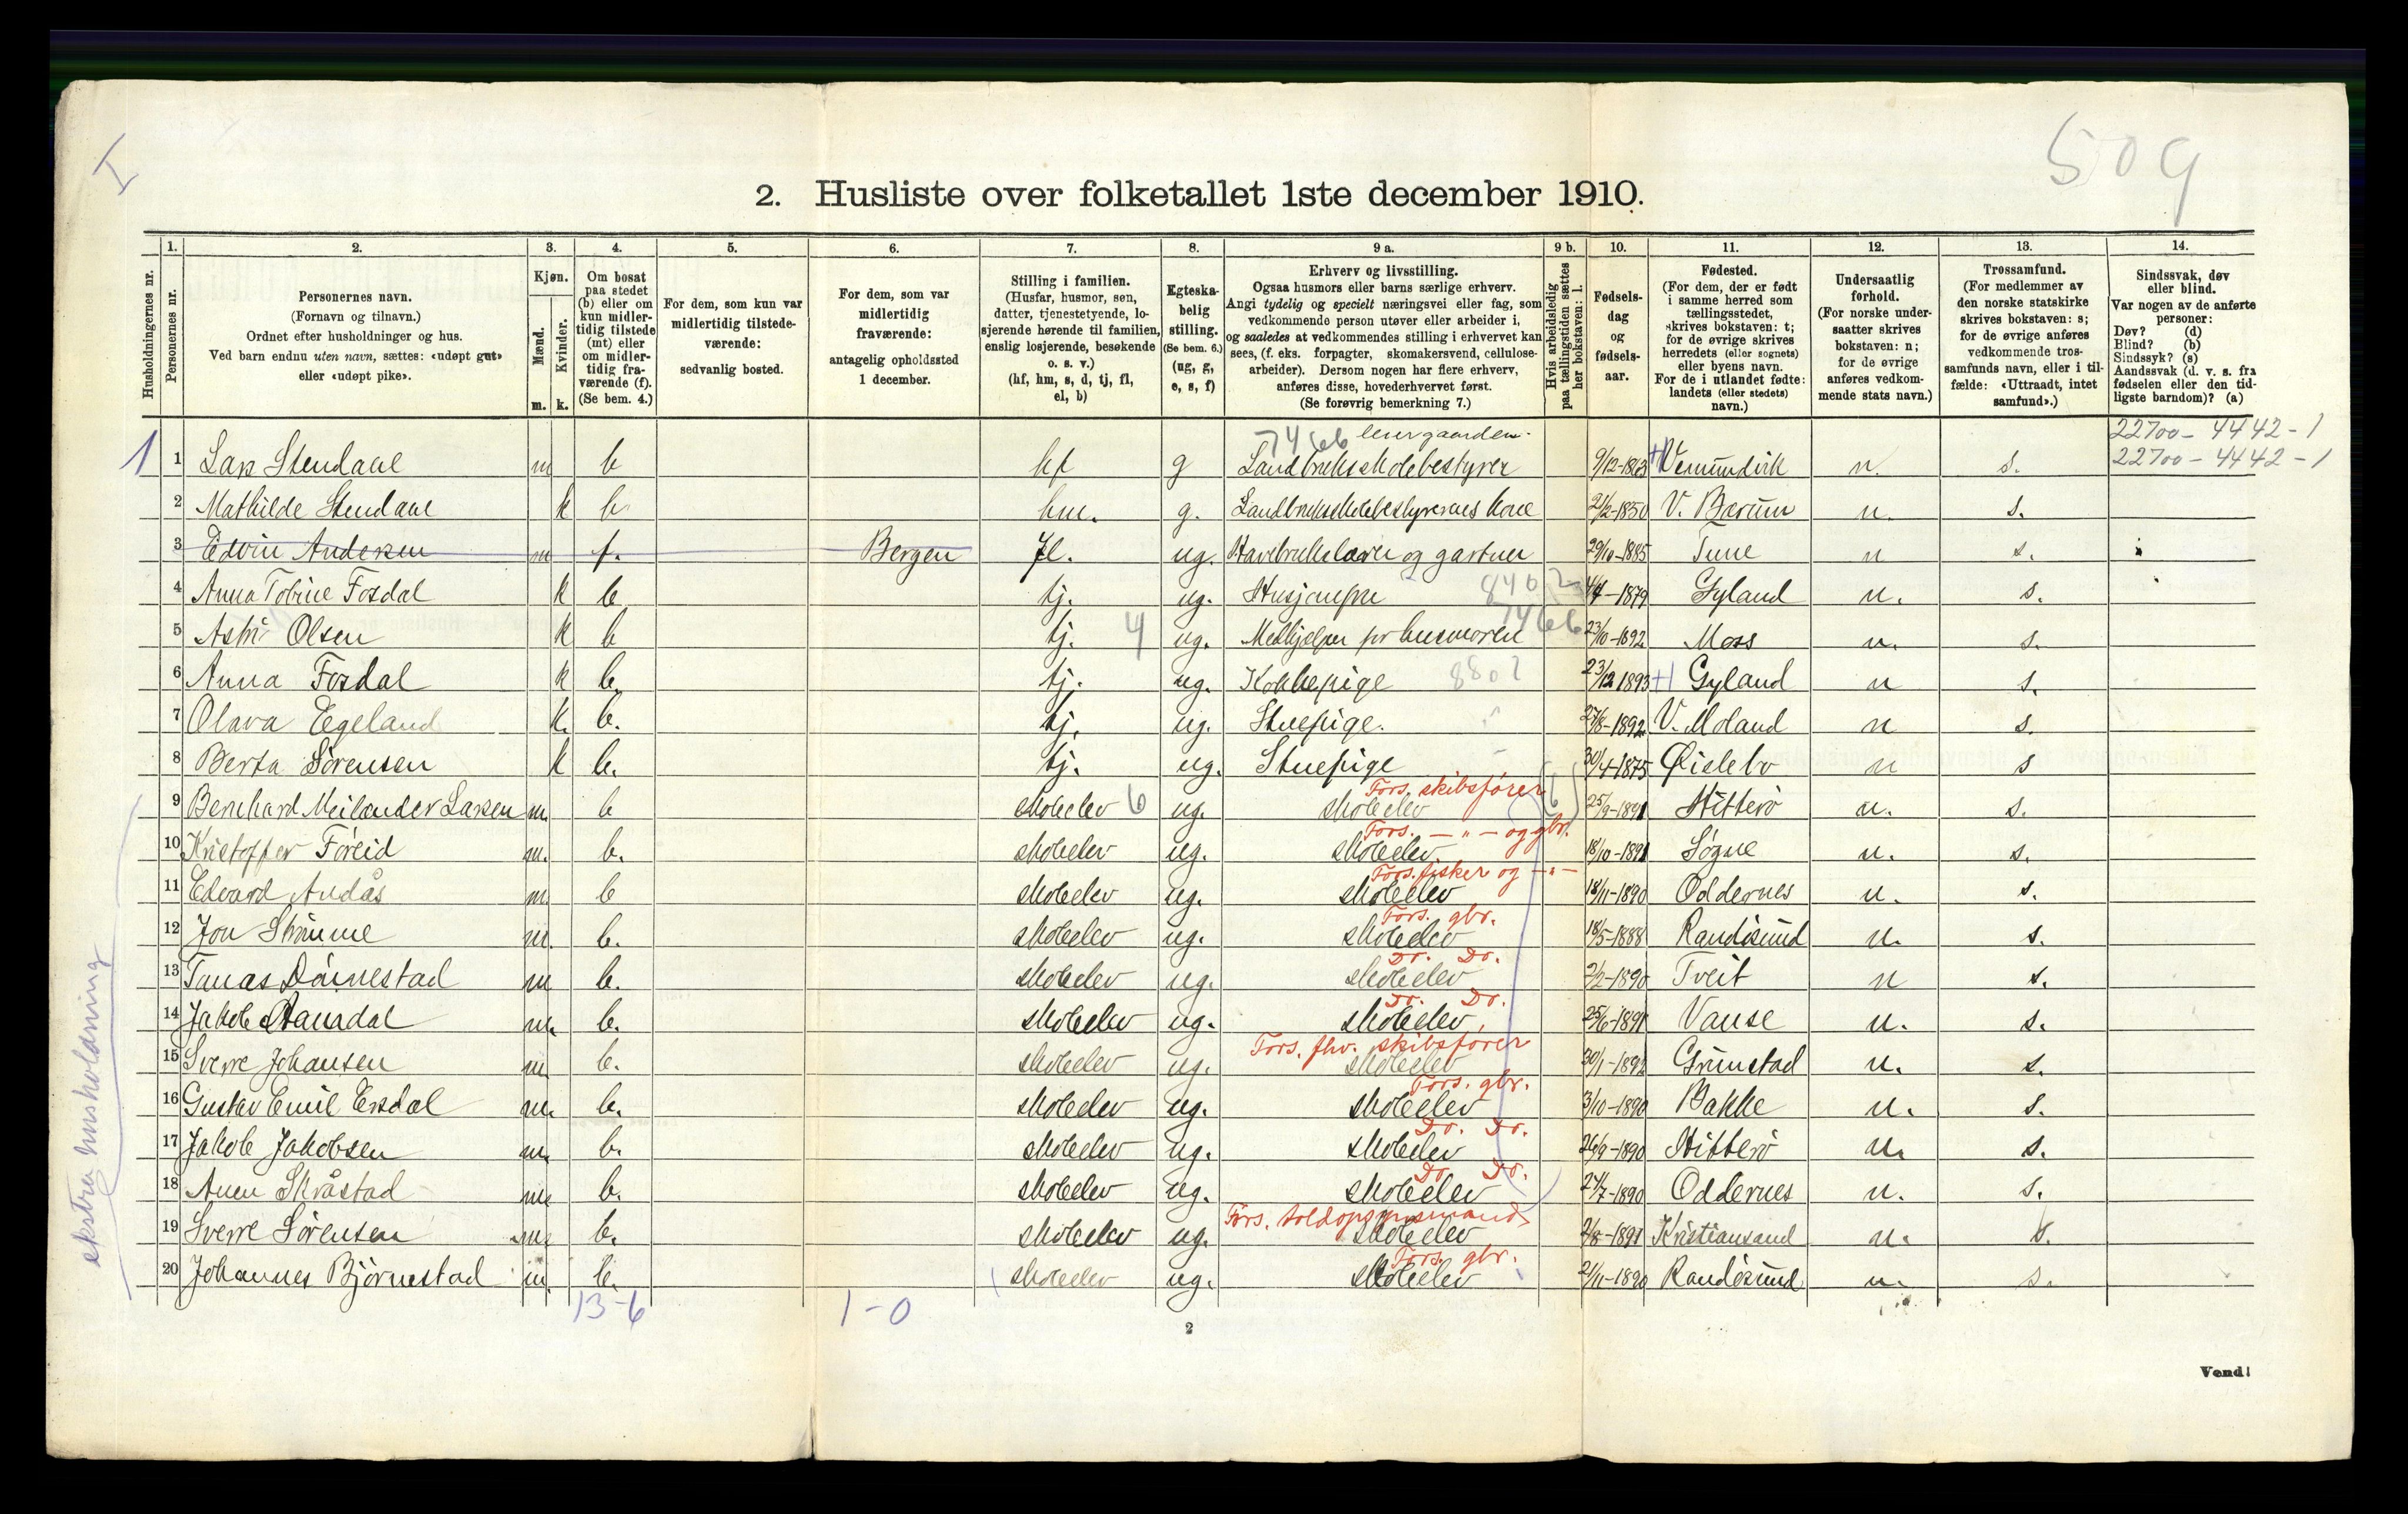 I
509
2. Husliste over folketallet 1ste december 1910.
Husholdningernes nr.
1.
Personernes nr.
2.
Personernes navn.
(Fornavn og tilnavn.)
Ordnet efter husholdninger og hus.
Ved barn endnu uten navn, sættes: «udøpt gut»
eller «udøpt pike».
3.
Kjøn.
Mænd.
Kvinder.
m. k.
4.
Om bosat
paa stedet
(b) eller om
kun midler-
tidig tilstede
(mt) eller
om midler-
tidig fra-
værende (f).
(Se bem. 4.)
5.
For dem, som kun var
midlertidig tilstede-
værende:
sedvanlig bosted.
6.
For dem, som var
midlertidig
fraværende:
antagelig opholdssted
1 december.
7.
Stilling i familien.
(Husfar, husmor, søn,
datter, tjenestetyende, lo-
sjerende hørende til familien,
enslig losjerende, besøkende
o. s. v.)
(hf, hm, s, d, tj, fl,
el, b)
8.
Egteska-
belig
stilling.
(Se bem. 6.)
(ug, g,
e, s, f)
9 a.
Erhverv og livsstilling.
Ogsaa husmors eller barns særlige erhverv.
Angi tydelig og specielt næringsvei eller fag, som
vedkommende person utøver eller arbeider i,
og saaledes at vedkommendes stilling i erhvervet kan
sees, (f. eks. forpagter, skomakersvend, cellulose-
arbeider). Dersom nogen har flere erhverv,
anføres disse, hovederhvervet først.
(Se forøvrig bemerkning 7.)
9 b.
Hvis arbeidsledig
paa tællingstiden sættes
her bokstaven: l.
10.
Fødsels-
dag
og
fødsels-
aar.
11.
Fødested.
(For dem, der er født
i samme herred som
tællingsstedet,
skrives bokstaven: t;
for de øvrige skrives
herredets (eller sognets)
eller byens navn.
For de i utlandet fødte:
landets (eller stedets)
navn.)
12.
Undersaatlig
forhold.
(For norske under-
saatter skrives
bokstaven: n;
for de øvrige
anføres vedkom-
mende stats navn.)
13.
Trossamfund.
(For medlemmer av
den norske statskirke
skrives bokstaven: s;
for de øvrige anføres
vedkommende tros-
samfunds navn, eller i til-
fælde: «Uttraadt, intet
samfund».)
14.
Sindssvak, døv
eller blind.
Var nogen av de anførte
personer:
Døv? (d)
Blind? (b)
Sindssyk? (s)
Aandssvak (d. v. s. fra
fødselen eller den tid-
ligste barndom)? (a)
7466
22700 - 4442 - 1
1 1 Lars Stendal m b hf g Landbruksskolebestyrer 9/12-1863 n. s. 22700 - 4442 - 1
2 Mathilde Stendal k b hm. g. Landbruksskolebestyrerens kone 21/2-1850 V. Bærum n. s.
3 Edvin Andersen m f. Bergen fl. ug. Havebrukslærer og gartner 29/10-1885 Tune n s.
8402
4 Anna Tobine Fosdal k b tj. ug. Husjomfru 1879 Gyland n. s.
7466
5 Olsen k b tj. 4 ug. Medhjelper for husmoren 23/10-1892 Moss n. s.
6 Anna Fosdal k b. tj. ug. Kokkepige 23/12 1893 Gyland n s.
7 Olava Egeland k. b. tj. ug. Stuepige. 27/8-1892 V. Moland n s.
8 Berta Sørensen k b. tj. ug. Stuepige 30/4-1875 Øislebø n s
Fors. skibsfører
9 Bernhard Meilænder Larsen m. b skoleelev 6 ug. skoleelev 25/9-1891 Hitterø n. s.
Fors. — " — og gbr.
10 Kristoffer Føreid m. b. skoleelev ug. skoleelev 18/10-1891 Søgne n. s.
Fors. fisker og — " —
11 Edvard Andås m. b skoleelev ug. skoleelev 18/11-1890 Oddernes n. s.
Fors. gbr.
12 Jon Strømme m. b. skoleelev ug. skoleelev 18/5-1888 Randøsund n. s.
Do. Do.
13 Tanas Dønnestad m b. skoleelev ug. skoleelev 2/2-1890 Tveit n s.
Do. Do.
14 Jakob m. b. skoleelev ug. skoleelev 25/6-1891 Vanse n. s.
Fors. fhv. skibsfører
15 Sverre Johansen m b. skoleelev ug. skoleelev 30/1-1892 Grimstad n. s.
Fors. gbr.
16 Gustav Emil Ersdal m. b. skoleelev ug. skoleelev 3/10-1890 Bakke n. s.
Do. Do.
17 Jakob Jakobsen m. b. skoleelev ug. skoleelev 26/9-1890 Hitterø n. s.
Do. Do.
18 Anen Skråstad m. b. skoleelev ug. skoleelev 24/7-1890 Oddernes n. s.
Fors. toldopsynsmand
19 Sverre Sørensen m. b. skoleelev ug. skoleelev 2/8-1891 Kristiansand n. s.
Fors. gbr.
20 Johannes Bjørnestad m. b. skoleelev ug. skoleelev 21/11-1890 Randøsund n. s.
ekstra husholdning
13-6
1-0
2
Vend!